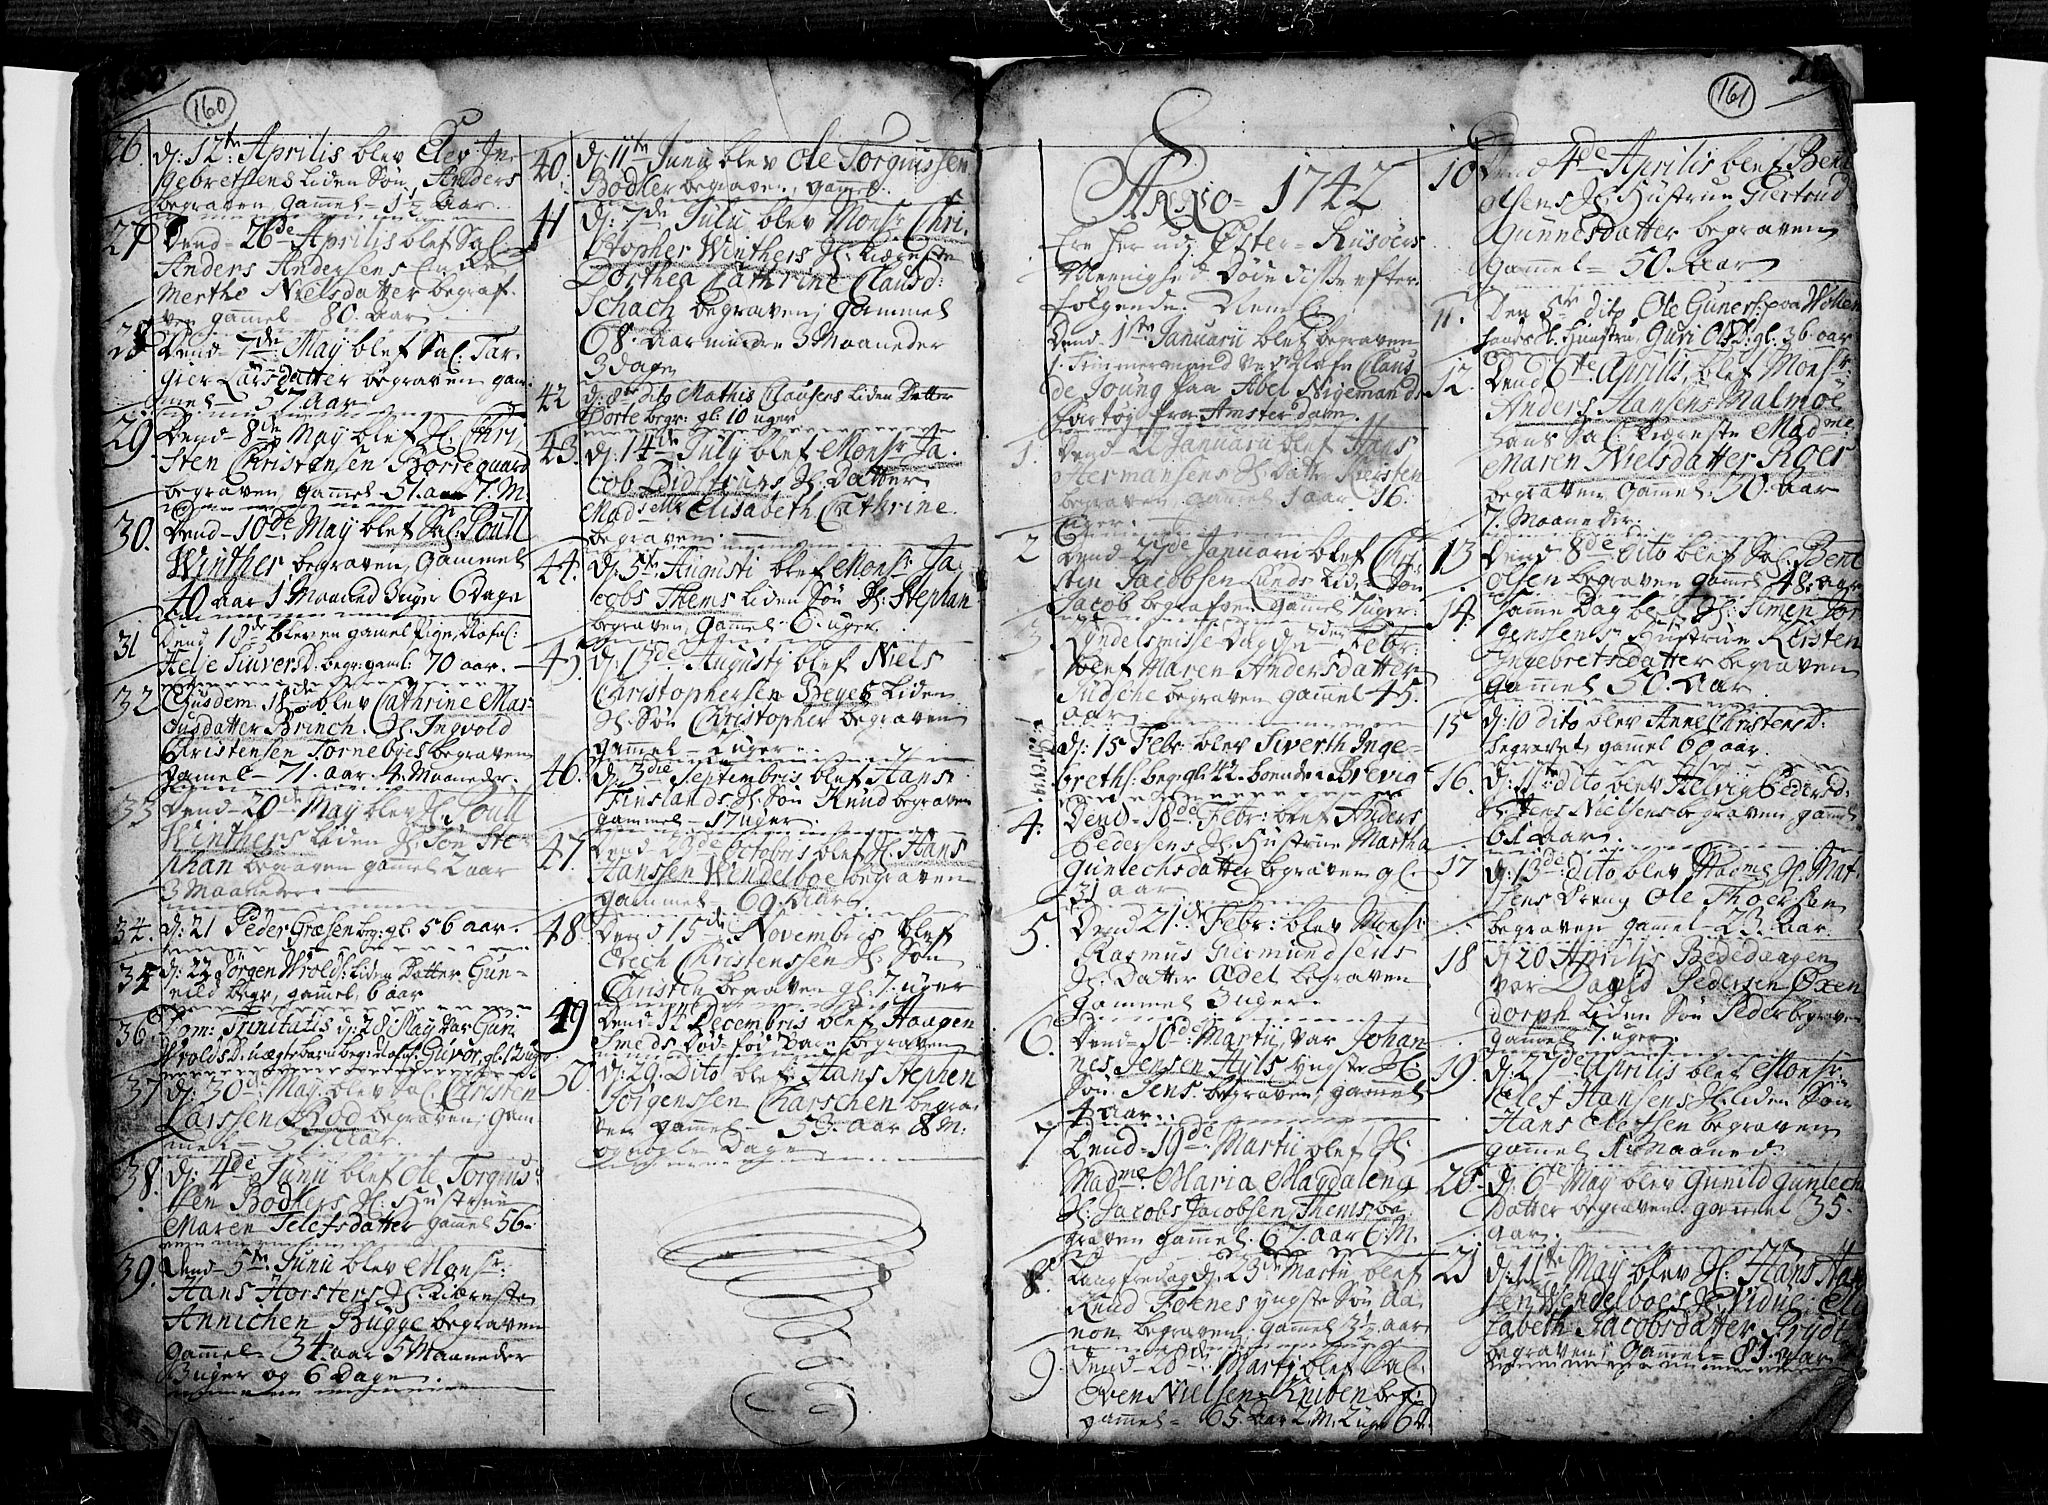 160
26. dj: 12te Aprilis blev Elev In-
gebretsens liden Søn Anders
begraven, gammel - 1½ aar.
27. Dend - 26de Aprilis blef Sal:
Anders Andersens Encke
Merthe Nielsdatter begraf-
ven gammel - 80. aar.
28. Dend - 7de May blef Sal: Tar-
gier Larsdatter begraven gam-
mel - 57 aar.
29. Dend - 8de May blef H: Chri-
sten Christensen Borregaard
begraven, gammel 51. aar 7. M.
30. Dend - 10de May blef Sal: Poull
Winther begraven, gammel
40 aar 1 Maaned 3 uger 6 Dage
31 Dend 18de blev en gammel Pige
Aelje Siuversd. begr: gaml: 70 aar.
32 Ejusdem 18de blev Cathrine Mar-
cusdatter Brinch. H: Ingvold
Christensen Torneboes begraven
gamel - 71. aar. 4. Maaneder.
33 Dend - 20de May blev H: Poull
Winthers liden H: Søn Ste-
phan begraven gammel 2 aar
3 Maaneder
34. dj: 21 Peder Græsen beg: gl: 56 aar.
35 dj: 22 Jørgen Wrolds: liden Datter Gun-
nild begr, gammel, 6 aar
36 Dom: Trinitatis dj: 28 May var Guri
Wrolds D: uægte barn begr: Guvor, gl: 12 uger
37 dj: 30de May blev Sal: Christen
Larssen Rød begraven, gam-
mel - 57. aar.
38. dj: 4de Junii blef Ole Torgius-
sen Bodlers H: Hustrue
Maren Telefsdatter gammel 56.
39. Dend 5te Junii blev Monsr:
Hans Horsters H: Kiæreste
Annichen Bugge begraven
gammel - 34. aar 5 Maaneder
3 uger og 6 Dage.
40. dj: 11te Junii blev Ole Torgiussen
Bodler begraven, gamel.
41 dj: 7de Julii blev Monsr Chri-
stopher Winthers H: Kiæreste
Dorthea Cathrine Clausd:
Schach begraven, gammel
68. aar mindre 3 Maaneder
3 Dage
42 d: 8de dito Mathis Clausens liden Datter
Dorte begr: gl: 10 uger
43. dj: 14de July blef Monsr Ja-
cob Bidstrups H: Datter
Madselle Elisabeth Cathrine
begraven.
44. dj: 5te Augusti blef Monsr Ja-
cobs Thems liden Søn H: Stephan
begraven, gammel - 6. uger.
45. dj: 13de Augustj blef Niels
Christophersen Beyes liden
H: Søn Christopher begraven
gamel - 2 uger.
46. dj: 3die Septembris blef Hans
Finslands H: Søn Knud begraven
gammel - 17 uger.
47. Dend 29de Octobris blef H: Hans
Hanssen Wendelboe begraven
gammel - 69. Aar.
48. Dend 15de Novembris blef
Erech Christenssen H: Søn
Christen begraven gl: 7. uger
49 Dend - 14 Decembris blef Haagen
Smeds Død-fød Barn begraven
50 dj: 29. Dito blef Hans Stephen
Jørgenssen Charschen begra-
ven gammel - 55. aar 8 M:
og nogle Dage
161
Anno - 1742
Ere her udj Øster - Riisøers
Meenighed Døde disse efter-
følgende. Nemlig
Dend - 1ste Januarii blef begraven
1. Timmermand ved Nafn Claus
de Joung paa Abel Nigemands
fartøg fra Amsterdam.
1. Dend 22 Januarii blef Hans
Hermansens H: Datter Kiersten
begraven gammel 1 aar 16.
uger.
2 Dend - 29de Januari blef Chri-
sten Jacobsen Lunds lid: Søn
Jacob begrafven gammel 7 uger.
3. Kyndelsmisse-Dag dj: 2den Febr:
blef Maren Andersdatter
Judche begraven gammel 45.
aar
dj: 15 Febr: blev Siverth Inge-
breths: begr: gl: 42. boende i Brevig
4. Dend - 18de Febr: blef Anders
Pedersens H: Hustrue Martha
Guntechsdatter begraven gl:
31 aar
5. Dend 21de Febr: blev Monsr
Rasmus Giermundsens
H: Datter Adel begraven
gammel 3 uger.
6. Dend - 16de Martij var Johan-
nes Jensen Hyls yngste H:
Søn Jens begraven gammel
4 aar.
7 Dend - 19de Martii blef H:
Madme Maria Magdalena
H: Jacobs Jacobsen Thems be-
graven gammel. 67. aar 6 M.
8. Langfredag dj. 23de Martii blef
Knud Foenes yngste Søn Aa-
non begraven gammel 3½ aar
9. Dend - 28de Martj blef Sal:
Even Nielsen Kniben beg:
gammel - 65. aar 2. M. 2 ug: 6 d.
10 Dend 4de Aprilis blef Bent
Olsens H: Hustrue Giertrud
Gunnesdatter begraven
gammel - 50. Aar
11. Den 5te dito, Ole Guners: paa
Hustru, Guri Ols D: gl: 36 aar
12. Dend 6te Aprilis, blef Monsr:
Anders Hansens Malmøe
hans Sal: Kiæreste Madme
Maren Nielsdatter Røer
begraven gamel. 70. aar
7. Maaneder.
13 Dend 8de dito blef Sal: Bent
Olsen begraven gammel 48. aar
14. Samme Dag blef H: Simen Jør-
genssens Hustrue Kirsten
Ingebretsdatter begraven
gammel 50. aar
15 dj: 10 dito blev Anne Christens D:
begravet, gammel 60 aar.
16. dj: 11te dito blev Helvig Pedersd:
Nielsens begraven gammel
61 aar.
17 dj: 13de dito blev Madme H: Mat-
sens Dreng Ole Thoersen
begraven gammel - 23. aar.
18 dj 20 Aprilis Bededagen
var David Pedersen Oxen-
dorph liden Søn Peder begraven
gammel 7. uger
19. dj: 27de Aprilis blev Monsr:
Elef Hansens H: liden Søn
Hans Elefsen begraven
gammel 1 Maaned.
20. dj: 6te May blev Gunild Guntech-
datter begraven gammel 35.
aar.
21 dj: 11te May blev H: Hans Han-
sen Wendelboes H: Vidue Eli-
zabeth Jacobsdatter Prydt
begraven, gammel - 81. aar